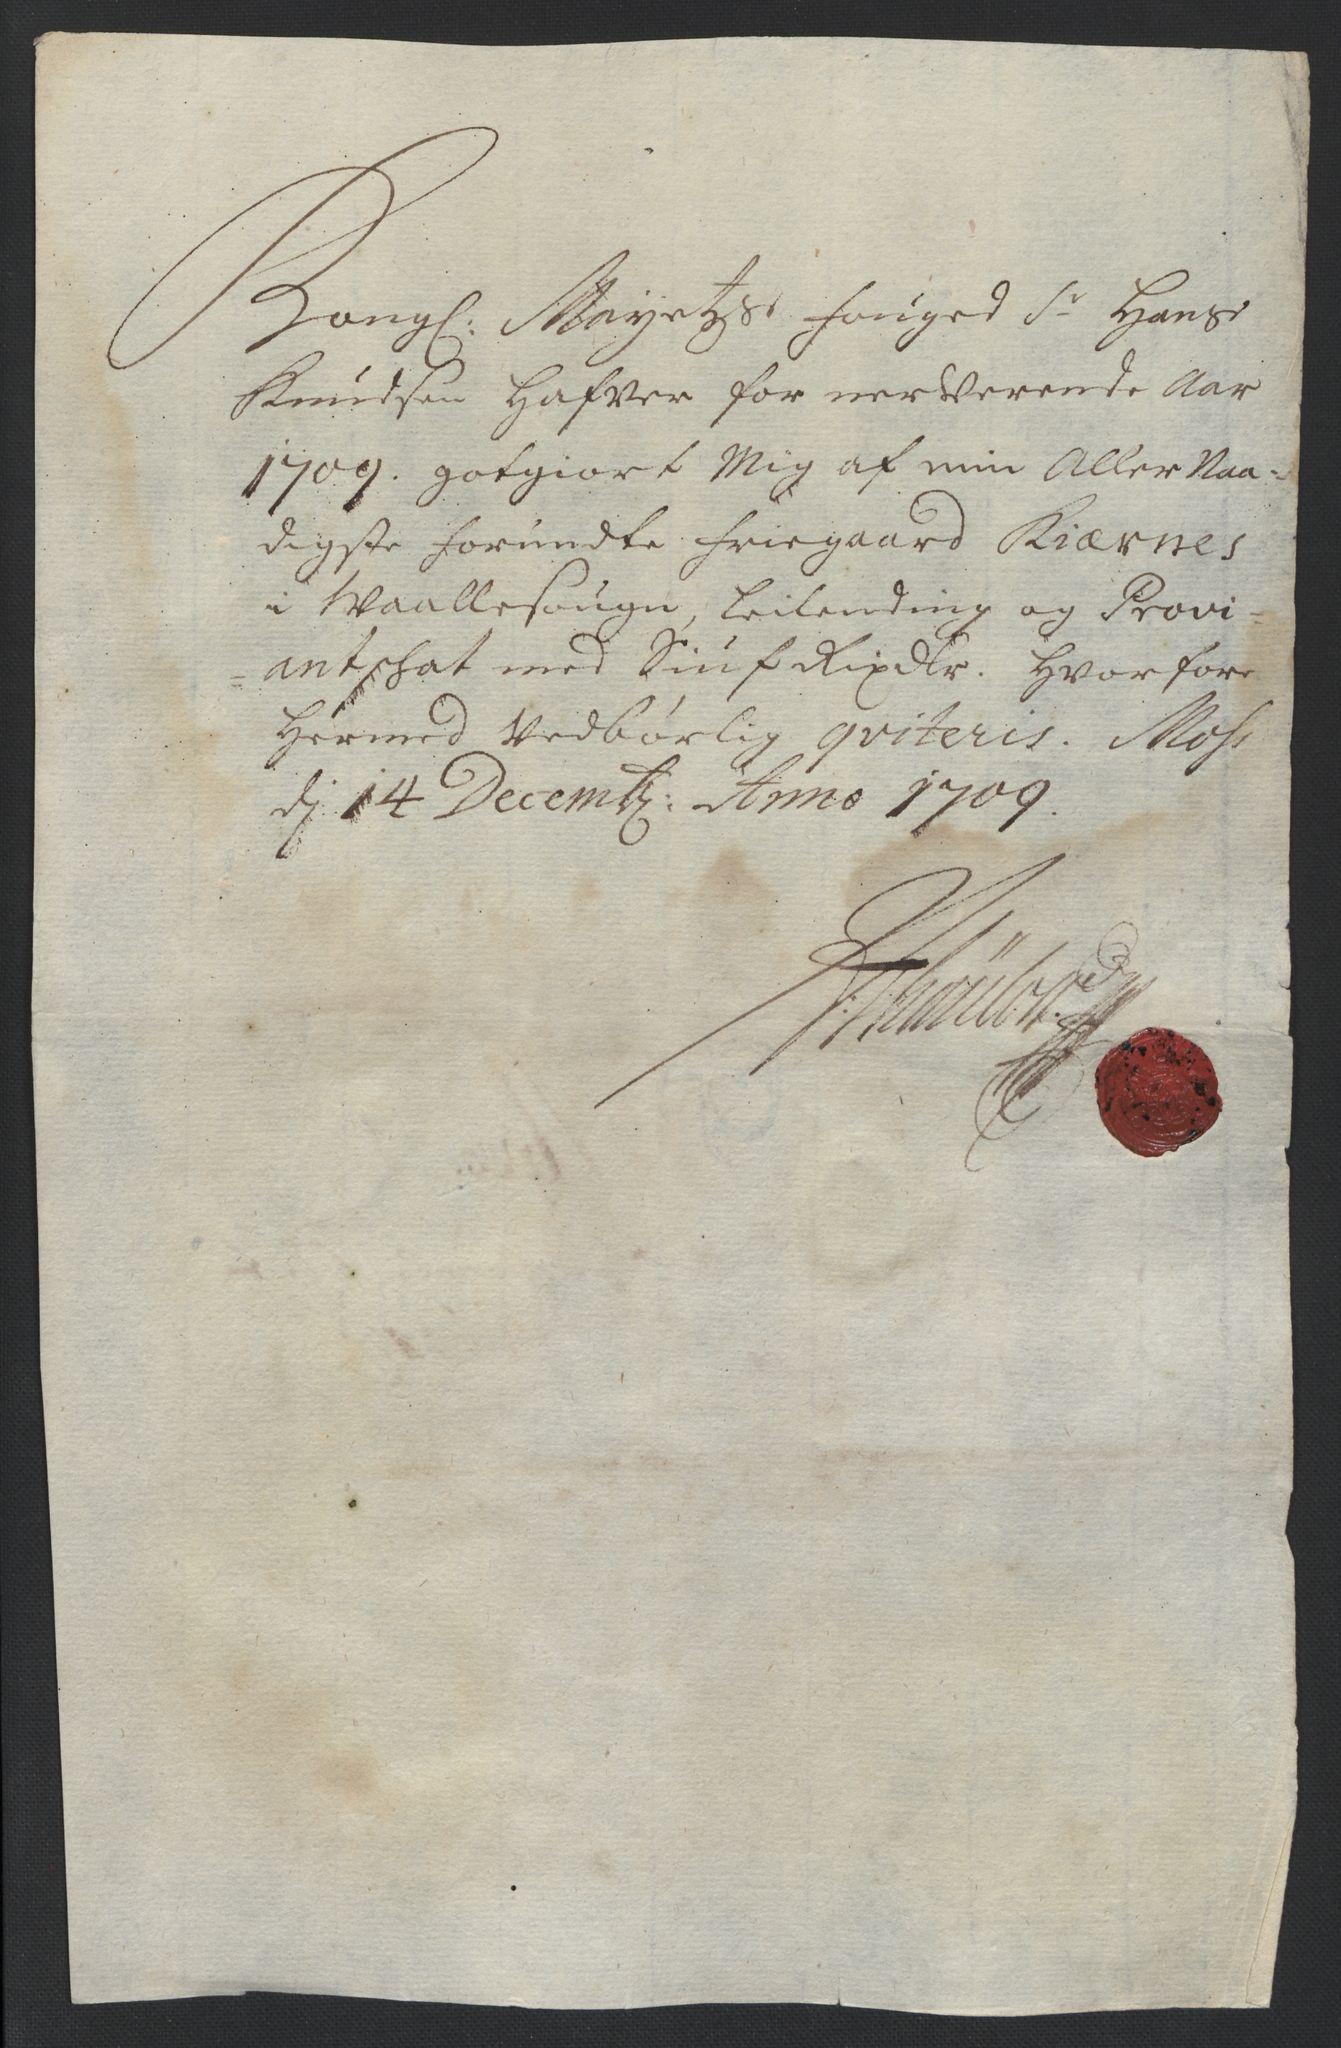 Kongl: Mayetz: fouged Sr Hans
Knudsen Hafver for nerverende Aar
1709. gotgiort Mig af min Aller Naa-
digste forundte friegaard Kiærnes
i Waallesougn, Leilending og Provi-
=antschat med Siuf Rixdlr. Hvorfore
Hermed Vedbørlig qviteris. Moss
dj 14 Decembr: Anno 1709.